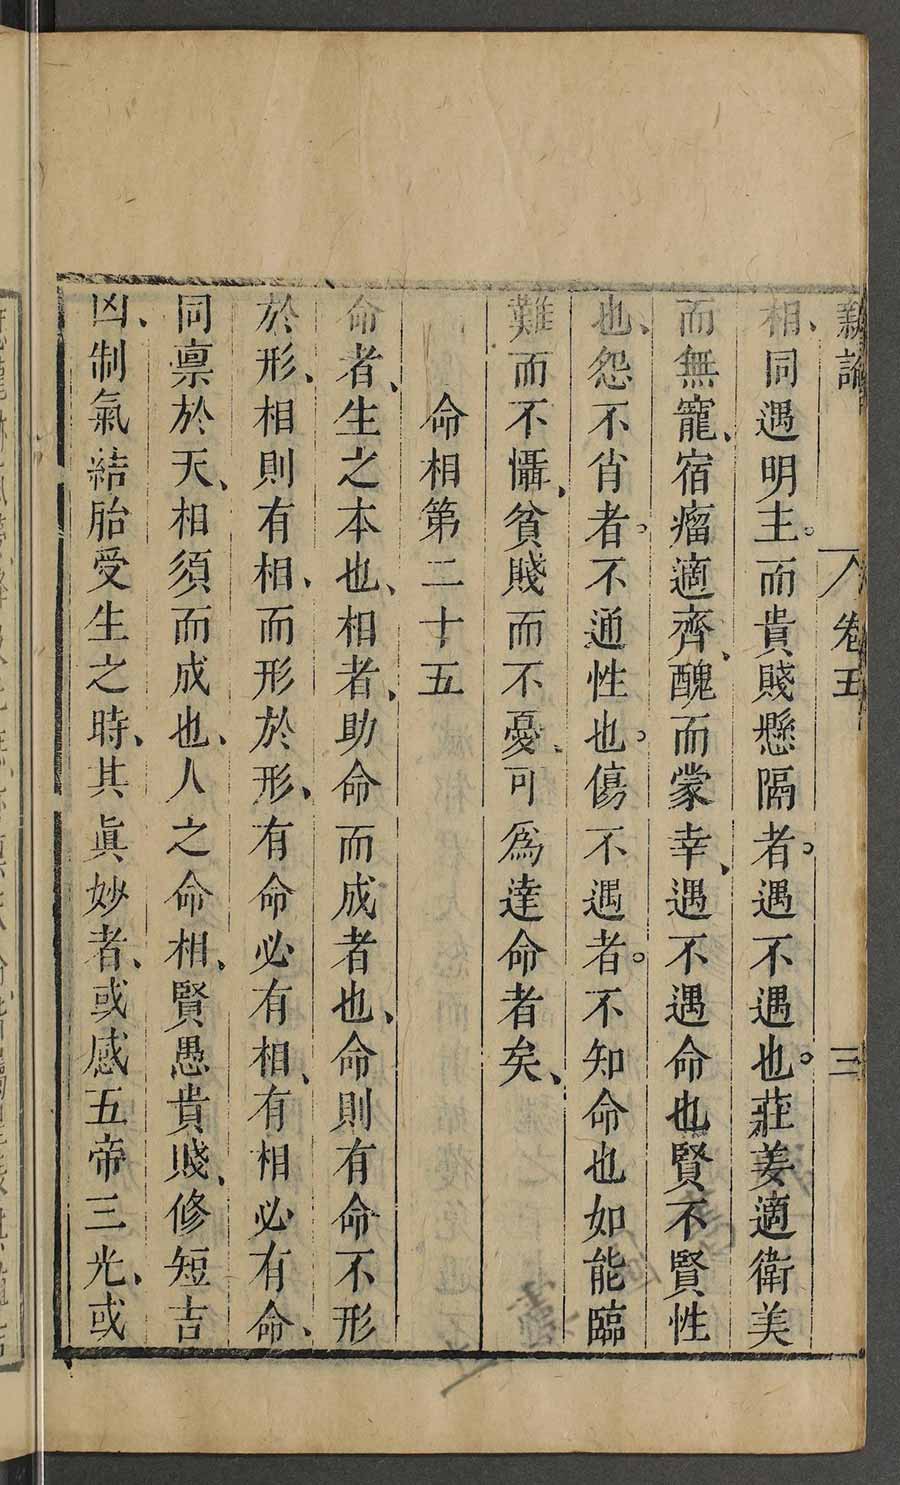 新論 卷五 三
相、同遇明主。而貴賤懸隔者。遇不遇也。莊姜適衛美
而無寵、宿瘤適齊、醜而蒙幸、遇不遇命也賢不賢性
也、怨不肖者。不通性也。傷不遇者。不知命也如能臨
難而不懾、貧賤而不憂、可爲達命者矣、
命相第二十五
命者、生之本也、相者、助命而成者也、命則有命不形
於形、相則有相、而形於形、有命必有相、有相必有命、
同禀於天、相須而成也、人之命相、賢愚貴賤、修短吉
凶、制氣結胎受生之時、其眞妙者、或感五帝三光、或